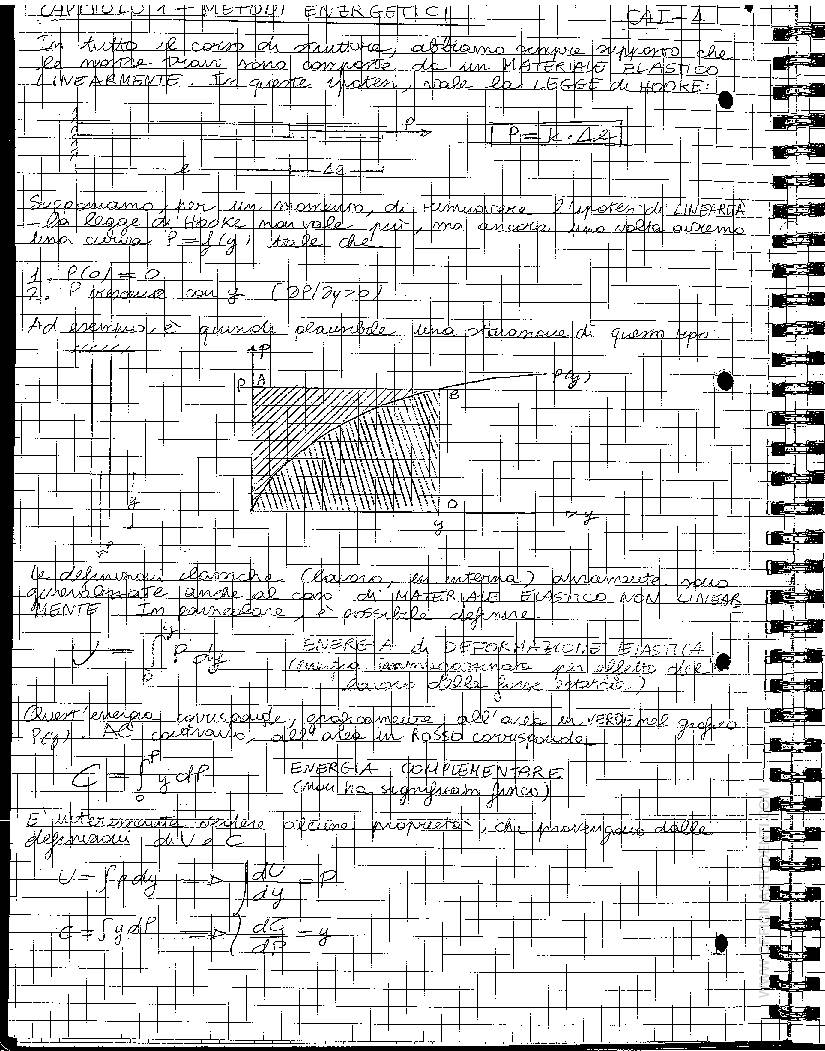 CAPITOLO 1 - METODI ENERGETICI
CAI-4
In tutto il corso di strutture, abbiamo sempre supposto che
le nostre travi sono composte da un MATERIALE ELASTICO
LINEARMENTE. In queste ipotesi, vale la LEGGE di HOOKE:
P
P = K · Δl
l Δl
Supponiamo, per un momento, di rimuovere l'ipotesi di LINEARITÀ
- la legge di Hooke non vale più, ma ancora una volta avremo
una curva P = f(y) tale che
1. P(0) = 0
2. P cresce con y (∂P/∂y>0)
Ad esempio, è quindi plausibile una situazione di questo tipo
P
P A
B P(y)
y
D
y y
Le definizioni classiche (lavoro, en. interna) ovviamente sono
generalizzate anche al caso di MATERIALE ELASTICO NON LINEAR
MENTE. In particolare, è possibile definire
U = ∫₀ʸ P dy
ENERGIA di DEFORMAZIONE ELASTICA
(energia immagazzinata per effetto del
lavoro delle forze esterne)
Quest'energia corrisponde, graficamente, all'area in VERDE nel grafico
P(y). AL contrario, all'area in ROSSO corrisponde
C = ∫₀ᴾ y dP
ENERGIA COMPLEMENTARE
(non ha significato fisico)
È interessante vedere alcune proprietà, che provengono dalle
definizioni di U e C
U = ∫ P dy ⇒ dU/dy = P
C = ∫ y dP ⇒ dC/dP = y